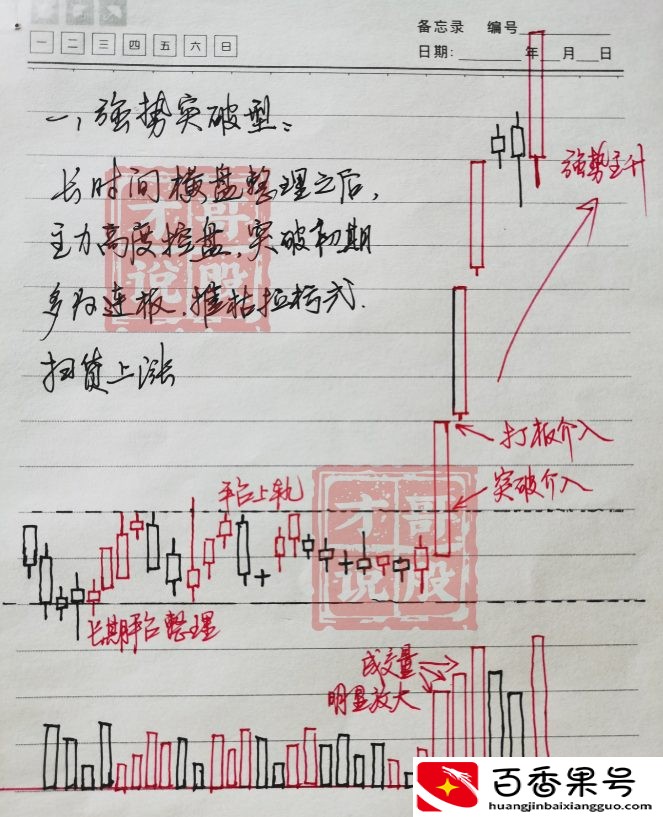 备忘录 编号
一 二 三 四 五 六 日
日期: 年 月 日
一、强势突破型:
长时间横盘整理之后,
主力高度控盘,突破初期
多为连板,摧枯拉朽式
扫货上涨
才哥
说股
强势主升
打板介入
突破介入
平台上轨
才哥
说股
长期平台整理
成交量
明显放大
百香果号
huangjinbaixiangguo.com